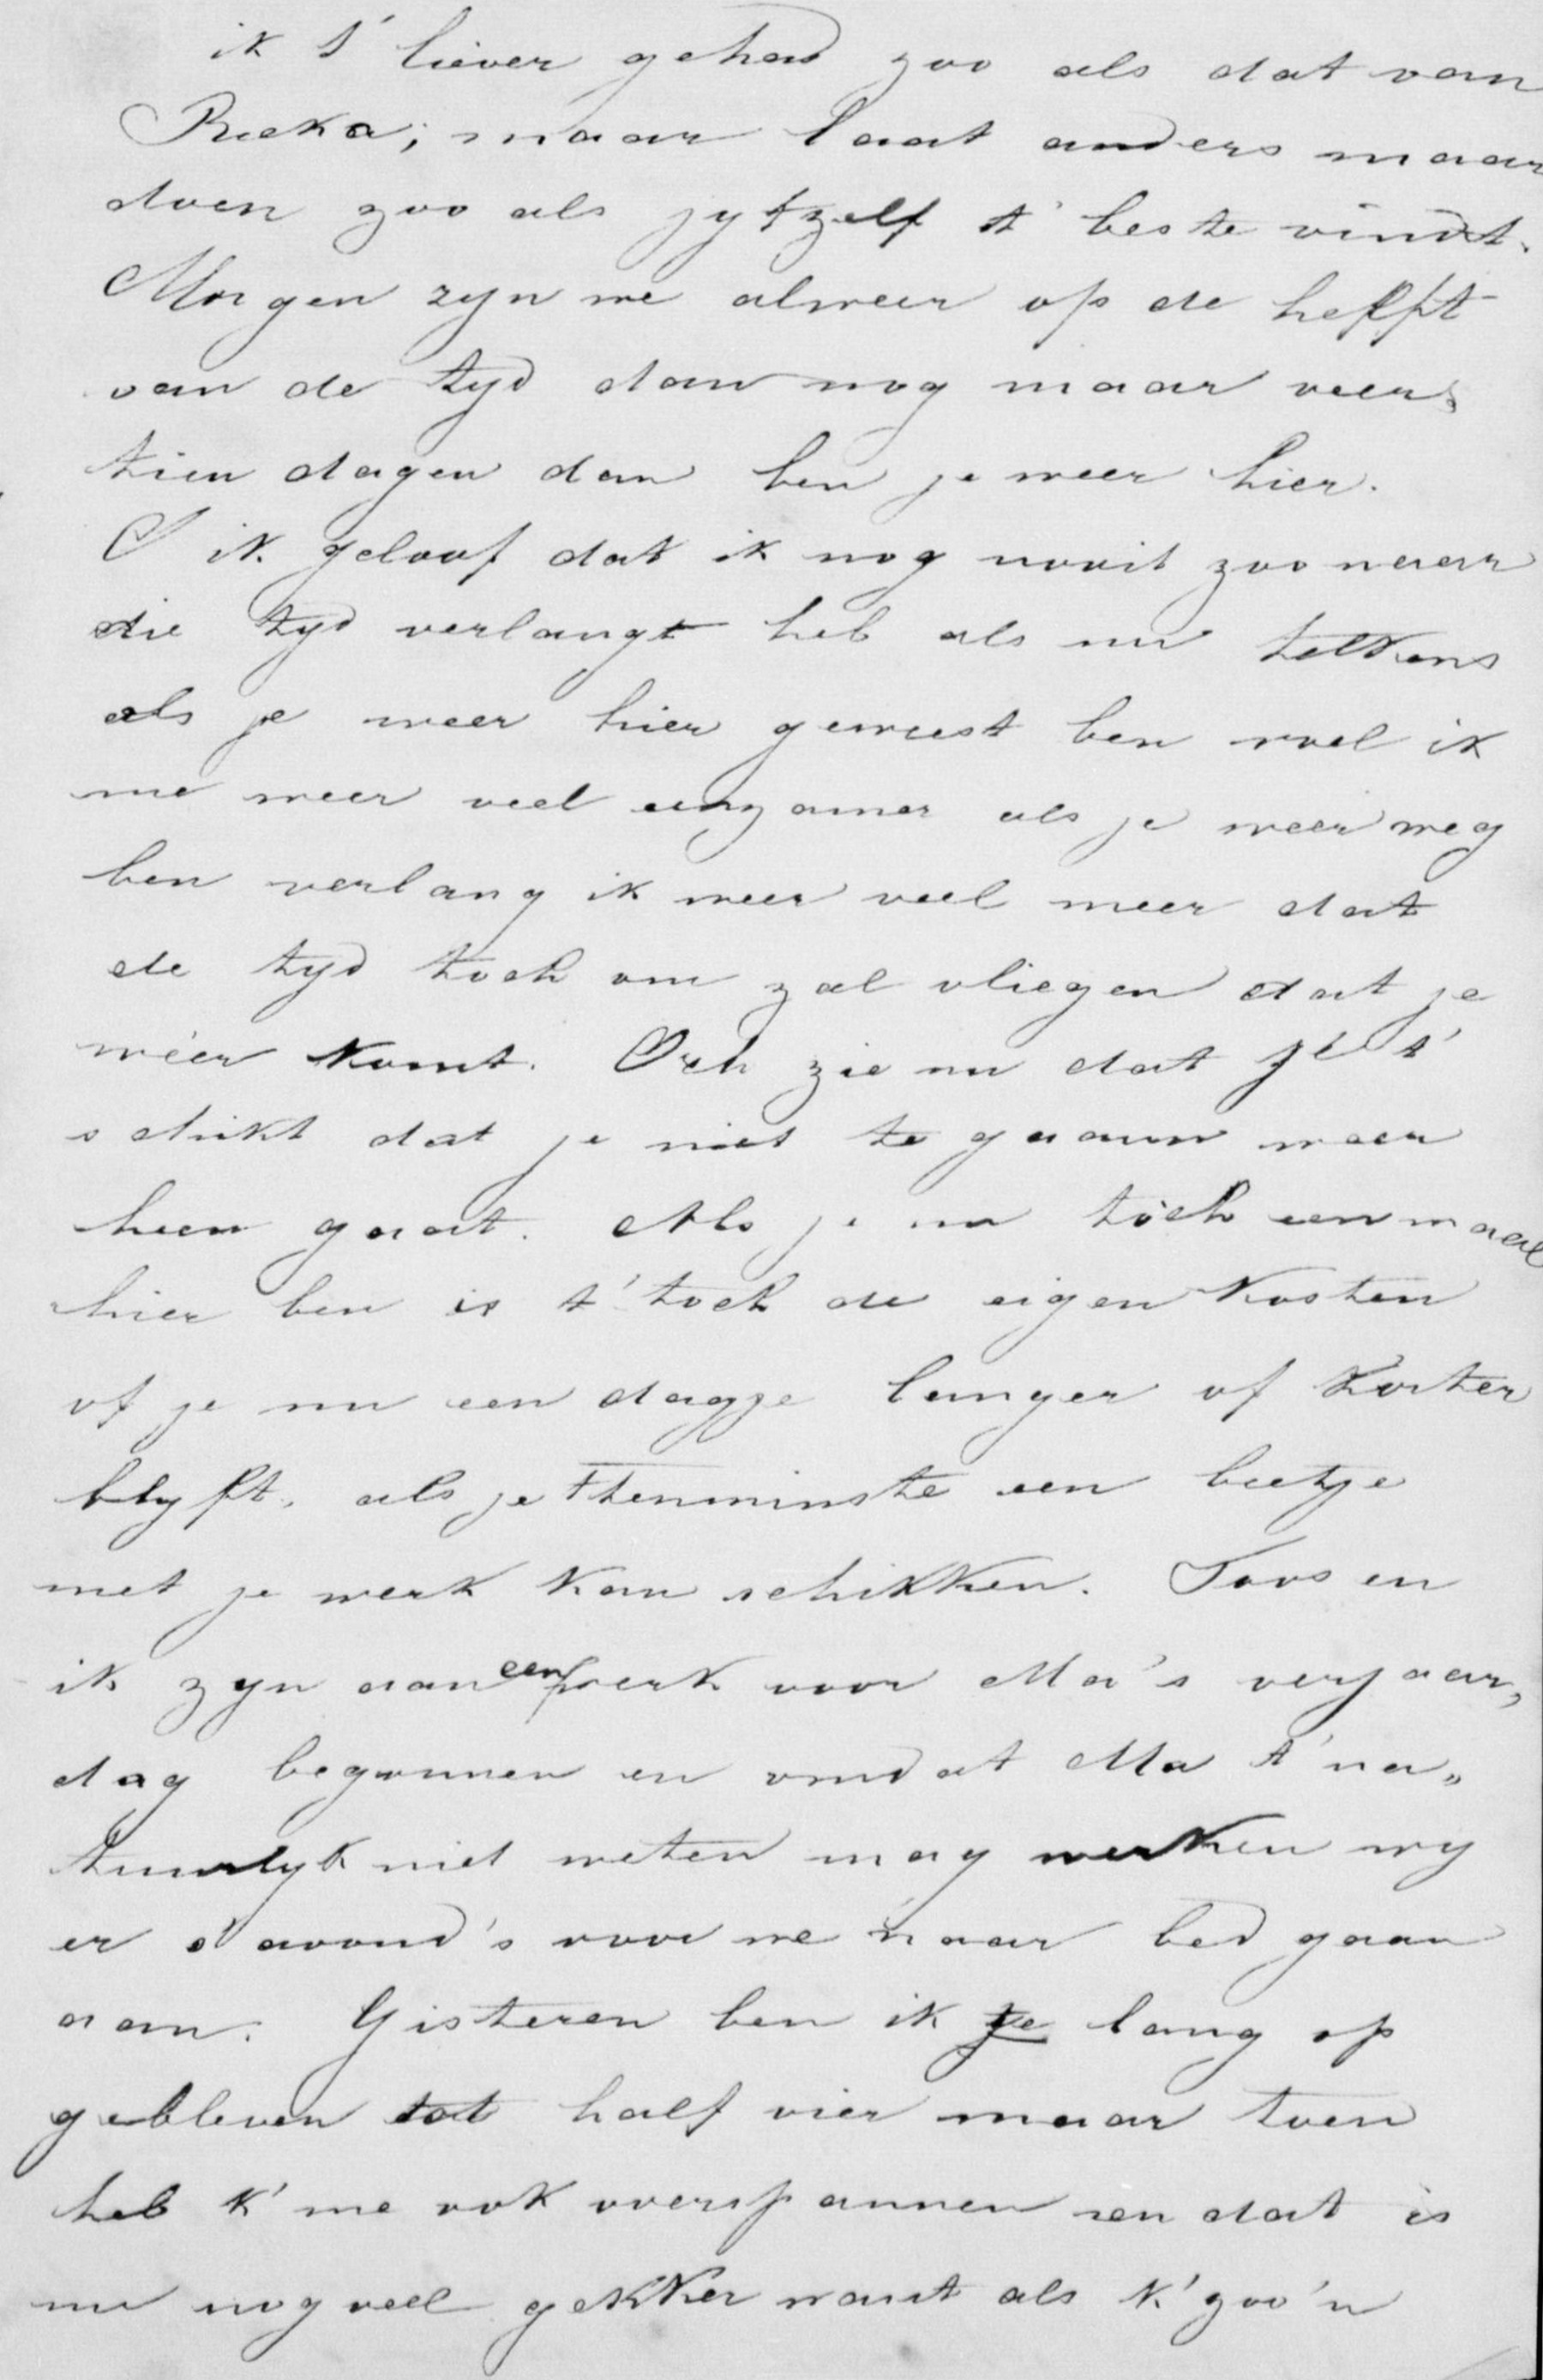 ik t' liever gehad zoo als dat van
Rieka; maar laat anders maar
doen zoo als jy zelf t' beste vindt.
Morgen zyn we alweer op de helft
van de tyd dan nog maar veer„
tien dagen dan ben je weer hier.
O ik geloof dat ik nog nooit zoo naar
die tyd verlangt heb als nu telkens
als je weer hier geweest ben voel ik
me weer veel eenzamer als je weer weg
ben verlang ik weer veel meer dat
de tyd toch om zal vliegen dat je
wéer komt. Och zie nu dat je t'
schikt dat je niet te gaauw weer
heen gaat. Als je nu tóch eenmaal
hier ben is t' toch de eigen kosten
of je nu een dagje langer of korter
blyft, als je t tenminste een beetje
met je werk kan schikken. Toos en
ik zyn aan een werk voor Ma's verjaar„
dag begonnen en omdat Ma t' na„
tuurlyk niet weten mag werken wy
er s' avond's voor we naar bed gaan
aan. Gisteren ben ik te lang op
gebleven tot half vier maar toen
heb k' me ook overspannen en dat is
nu nog veel gekker want als k' zoo'n